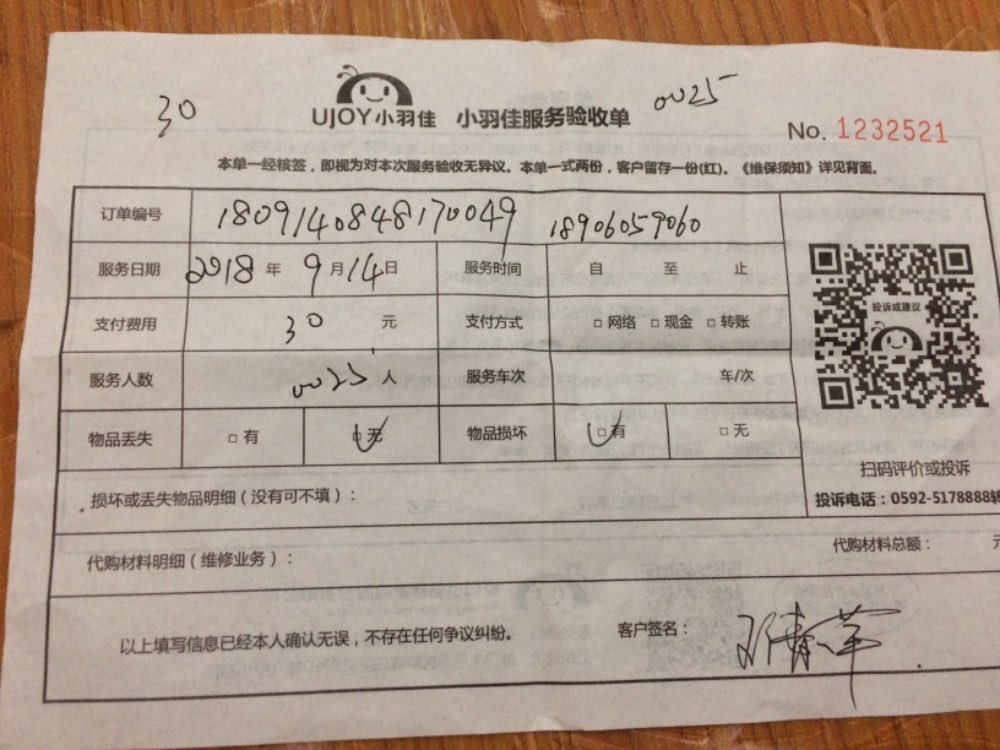 30
UJOY小羽佳 小羽佳服务验收单 0025
No. 1232521
本单一经核签，即视为对本次服务验收无异议。本单一式两份，客户留存一份(红)。《维保须知》详见背面。
订单编号 1809140848170049 18906059060
服务日期 2018 年 9 月 14 日 服务时间 自 至 止
投诉或建议
支付费用 30 元 支付方式 □ 网络 □ 现金 □ 转账
服务人数 0025 人 服务车次 车/次
物品丢失 □ 有 □ 无 物品损坏 □ 有 □ 无
扫码评价或投诉
损坏或丢失物品明细（没有可不填）：
投诉电话：0592-5178888转
代购材料明细（维修业务）： 代购材料总额： 元
以上填写信息已经本人确认无误，不存在任何争议纠纷。 客户签名：